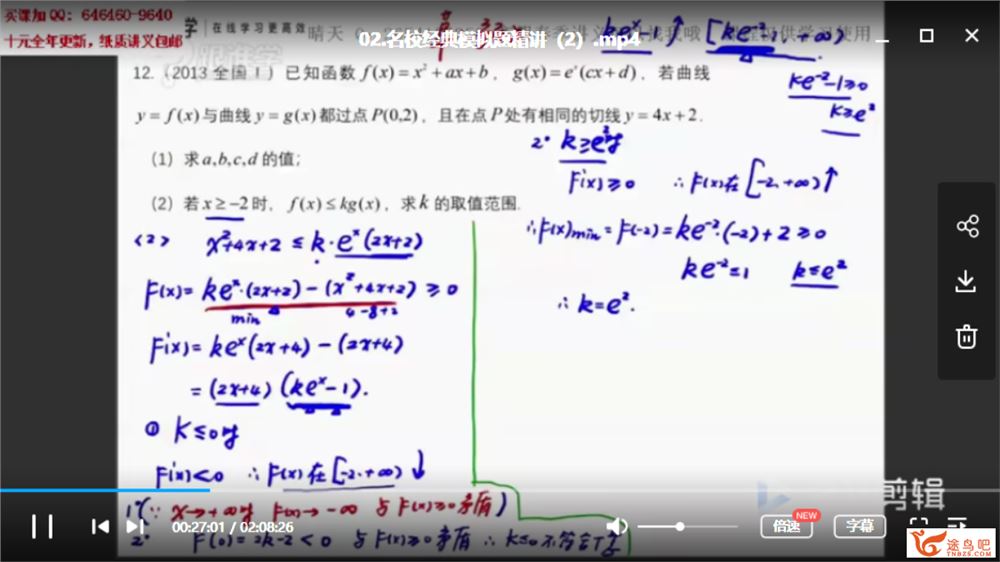 买课加QQ：646460-9640
十元全年更新，纸质讲义包邮
在线学习更高效
跟谁学
02.名校经典模拟题精讲（2）.mp4
ke^x-1 ↑ [ke^-2-1, +∞)
ke^-2-1≥0
k≥e^2
12.（2013 全国 I）已知函数 f(x)=x²+ax+b，g(x)=e^x(cx+d)，若曲线
y=f(x)与曲线 y=g(x)都过点 P(0,2)，且在点 P 处有相同的切线 y=4x+2．
（1）求 a,b,c,d 的值；
（2）若 x≥-2 时，f(x)≤kg(x)，求 k 的取值范围.
<2> x²+4x+2≤k·e^x(2x+2)
F(x)=ke^x·(2x+2)-(x²+4x+2)≥0
min 4-8+2
F'(x)=ke^x(2x+4)-(2x+4)
=(2x+4)(ke^x-1).
① k≤0时
F'(x)<0 ∴F(x)在[-2,+∞)↓
1°(∵x→+∞时 F(x)→-∞ 与F(x)≥0矛盾)
2° F(0)=2k-2<0 与F(x)≥0矛盾 ∴k≤0不符合
2° k≥e²时
F'(x)≥0 ∴F(x)在[-2,+∞)↑
∴F(x)min=F(-2)=ke^-2·(-2)+2≥0
ke^-2≤1 k≤e²
∴k=e².
00:27:01 / 02:08:26
倍速
NEW
字幕
剪辑
途鸟吧
TNBZS.COM